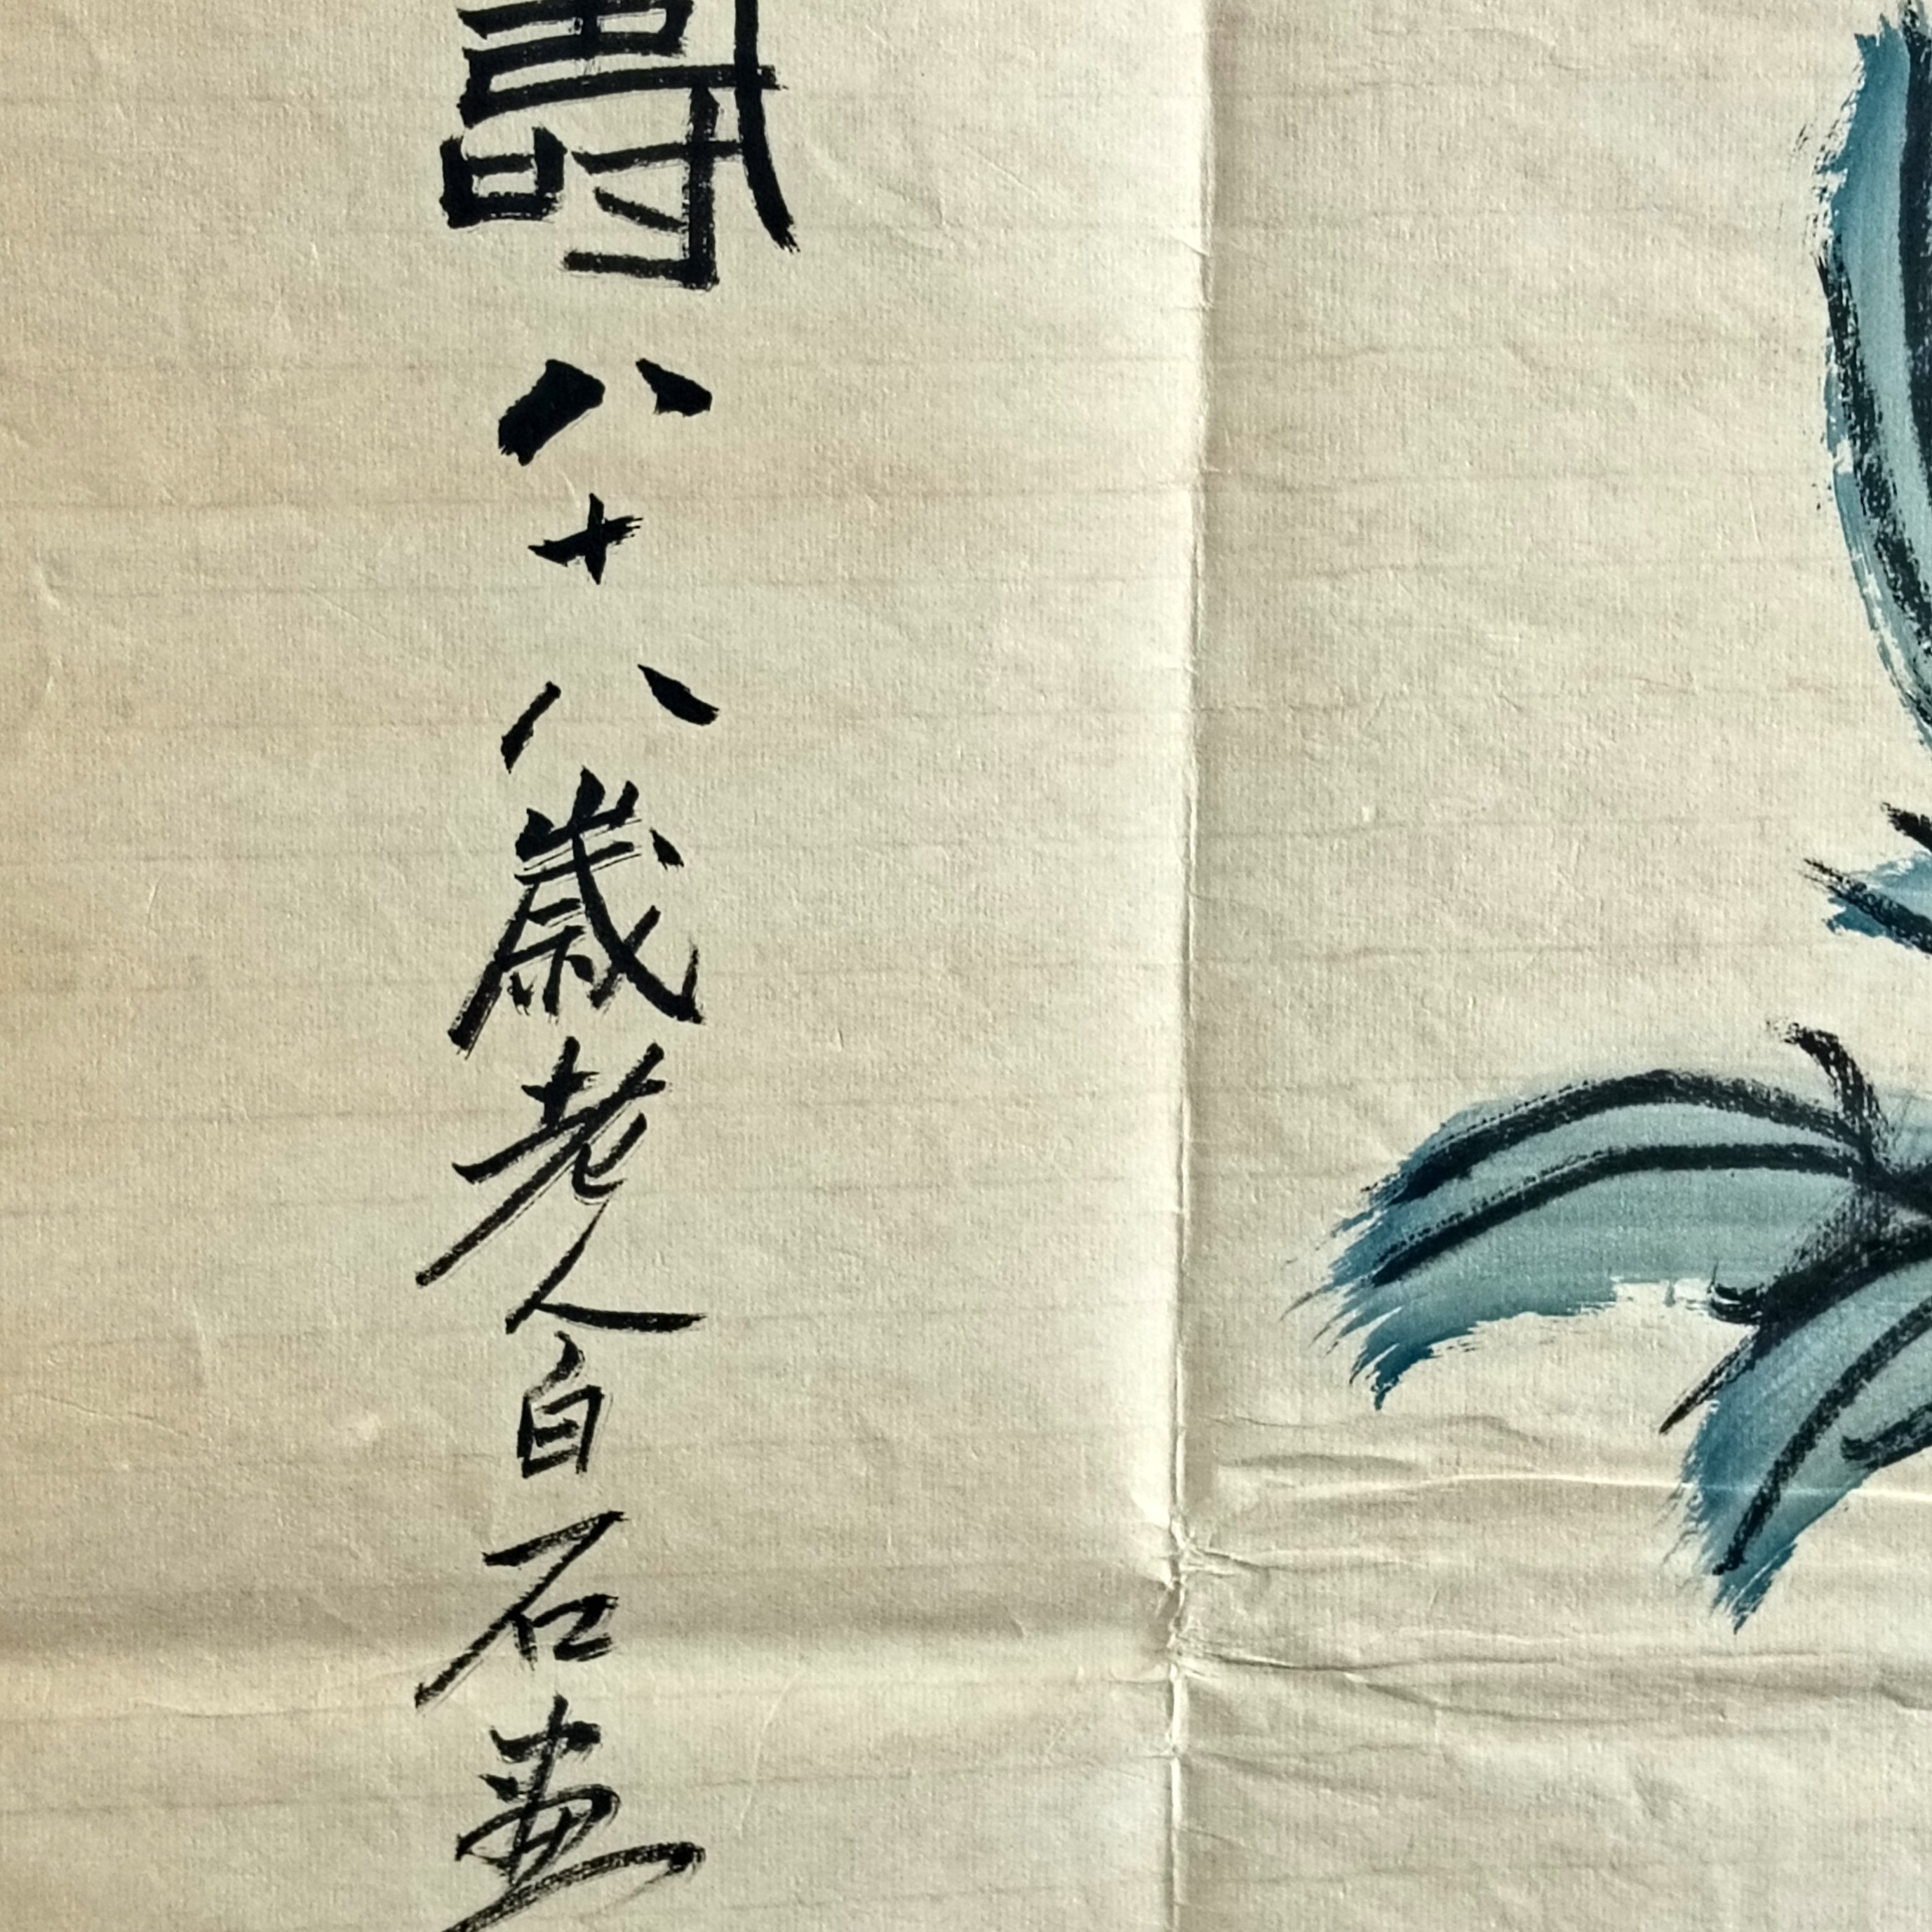 壽八十八歲老人白石畫